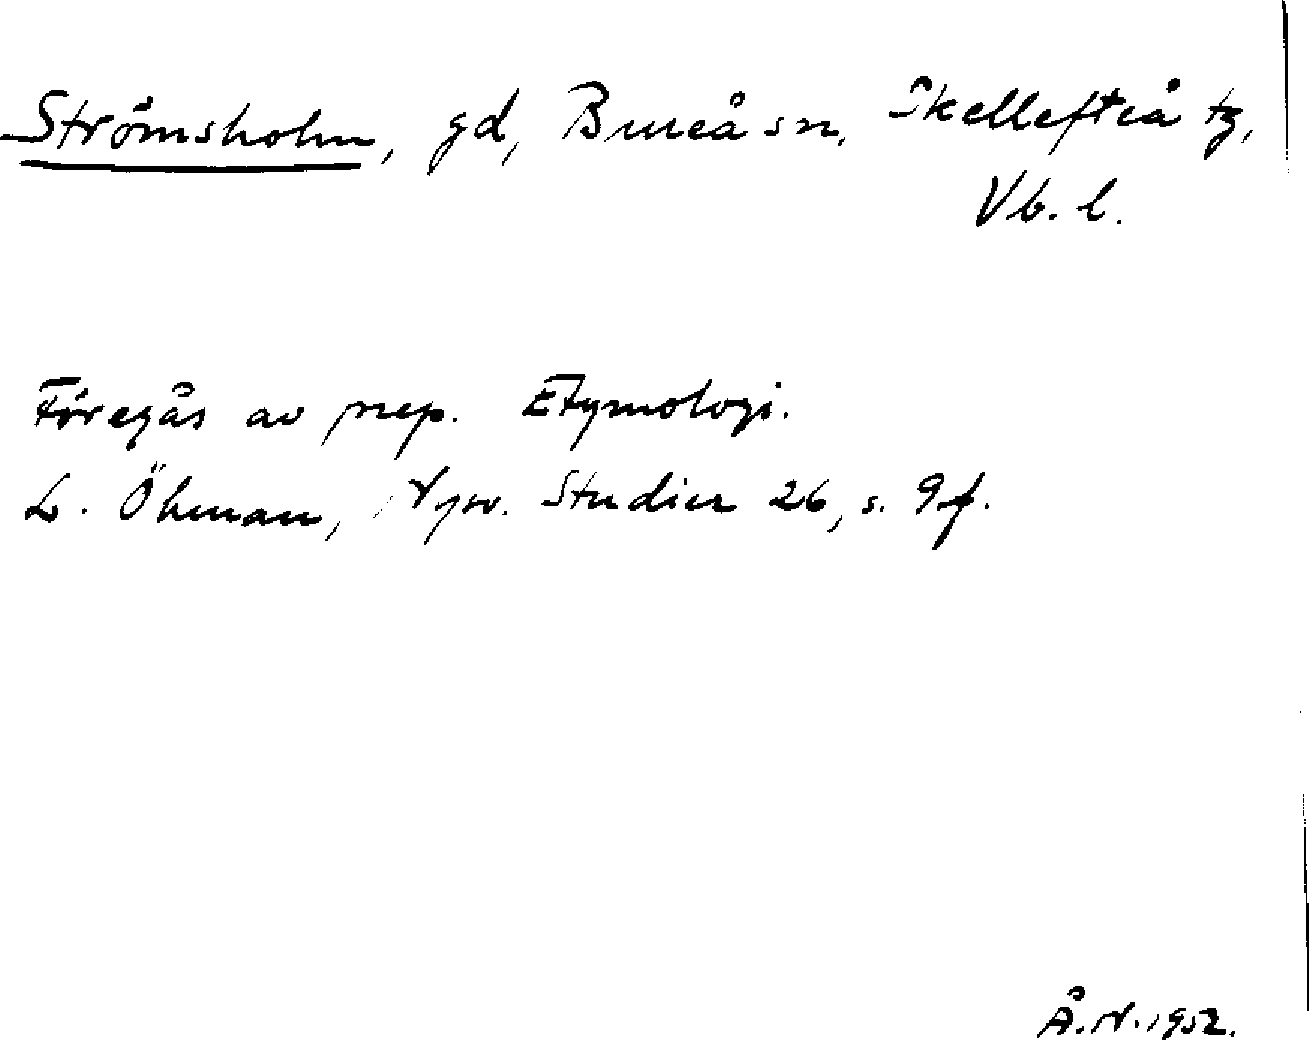 Strömsholm, gd, Bureå sn, Skellefteå tg,
Vb. l.
Föregås av prep. Etymologi.
L. Öhman, Nysv. Studier 26, s. 9f.
Å.N. 1952.